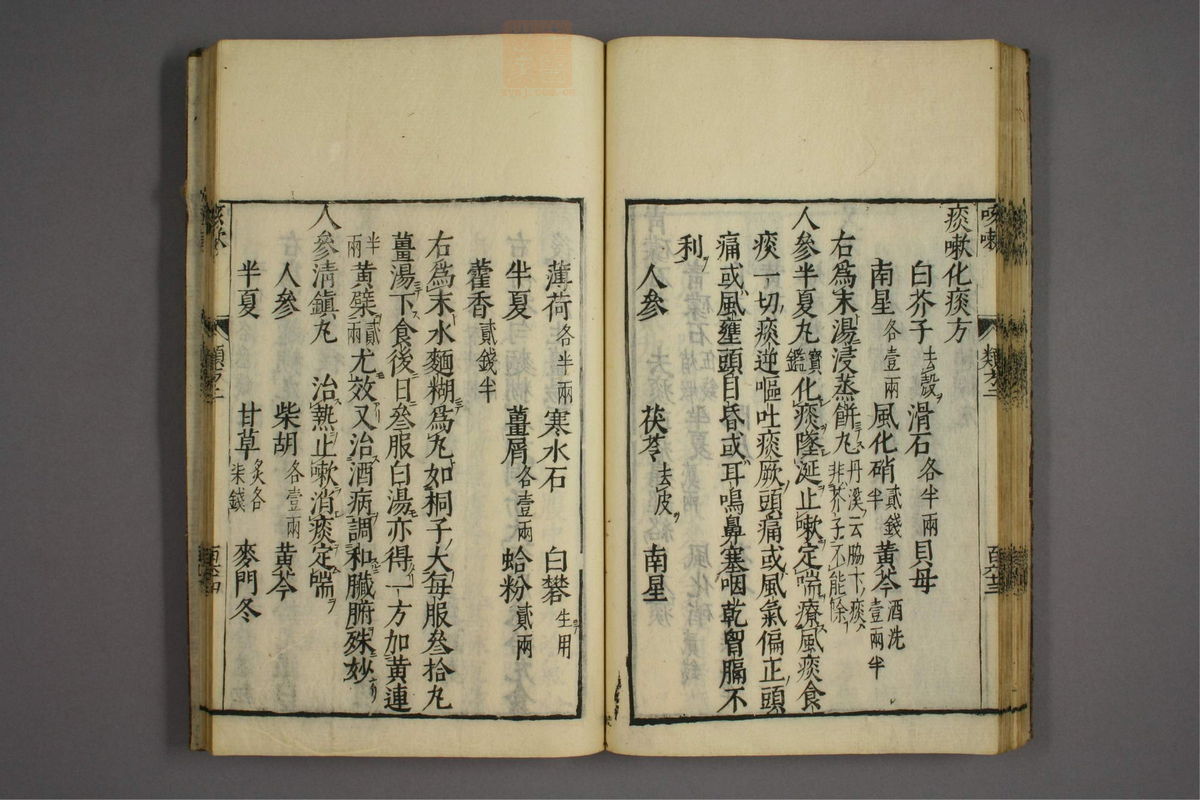 痰嗽化痰方
白芥子去殼 滑石各半兩 貝母
南星各壹兩 風化硝貳錢半 黃芩酒洗壹兩半
右爲末湯浸蒸餅丸丹溪云脇下痰非芥子不能除
人參半夏丸寶鑑 化痰墜涎止嗽定喘療風痰食
痰一切痰逆嘔吐痰厥頭痛或風氣偏正頭
痛或風壅頭目昏或耳鳴鼻塞咽乾胷膈不
利
人參 茯苓去皮 南星
薄荷各半兩 寒水石 白礬生用
半夏 薑屑各壹兩 蛤粉貳兩
藿香貳錢半
右爲末水麵糊爲丸如桐子大每服叁拾丸
薑湯下食後日叄服白湯亦得一方加黃連
半兩黃蘗貳兩尤效又治酒病調和臟腑殊妙
人參清鎮丸 治熱止嗽消痰定喘
人參 柴胡各壹兩 黃芩
半夏 甘草炙各柒錢 麥門冬